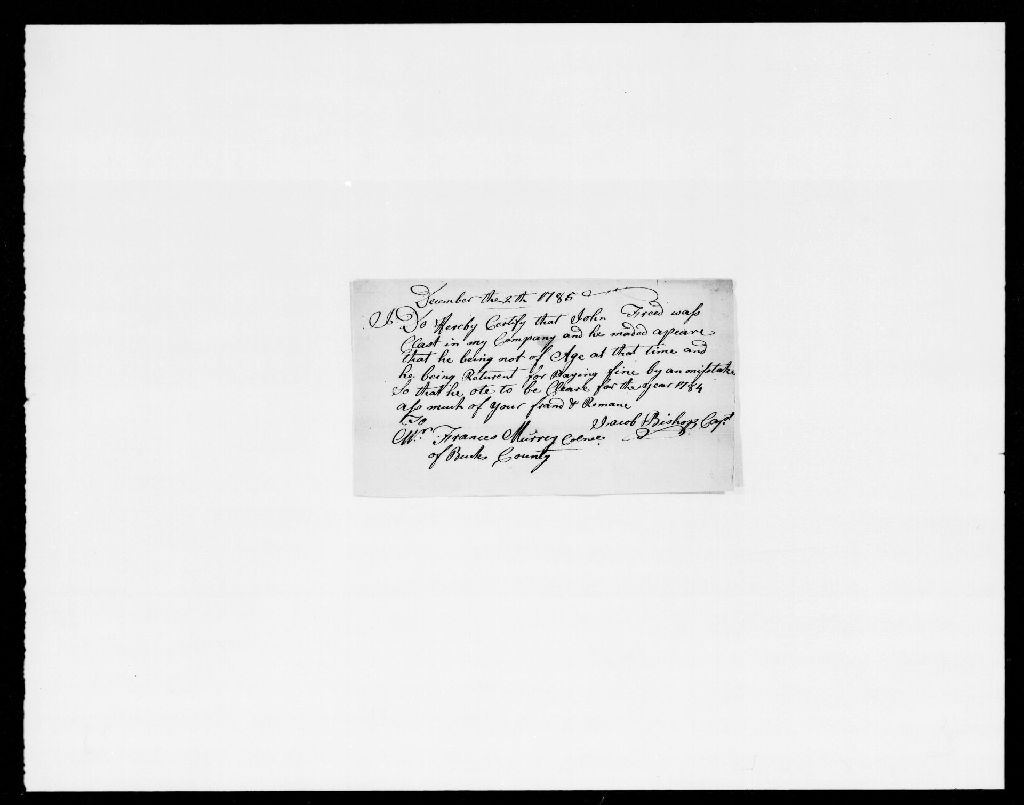 December the 2th 1785
I Do Hereby Certify that John Freed wass
Clast in my Company and he maded apeare
that he being not of Age at that time and
he being Returent for Paying fine by an misstake
So that he ote to be Cleare for the year 1784
ass much of your frind & Remane
To Jacob Bishop Capt
Mr Frances Murrey Colnel
of Bucks County